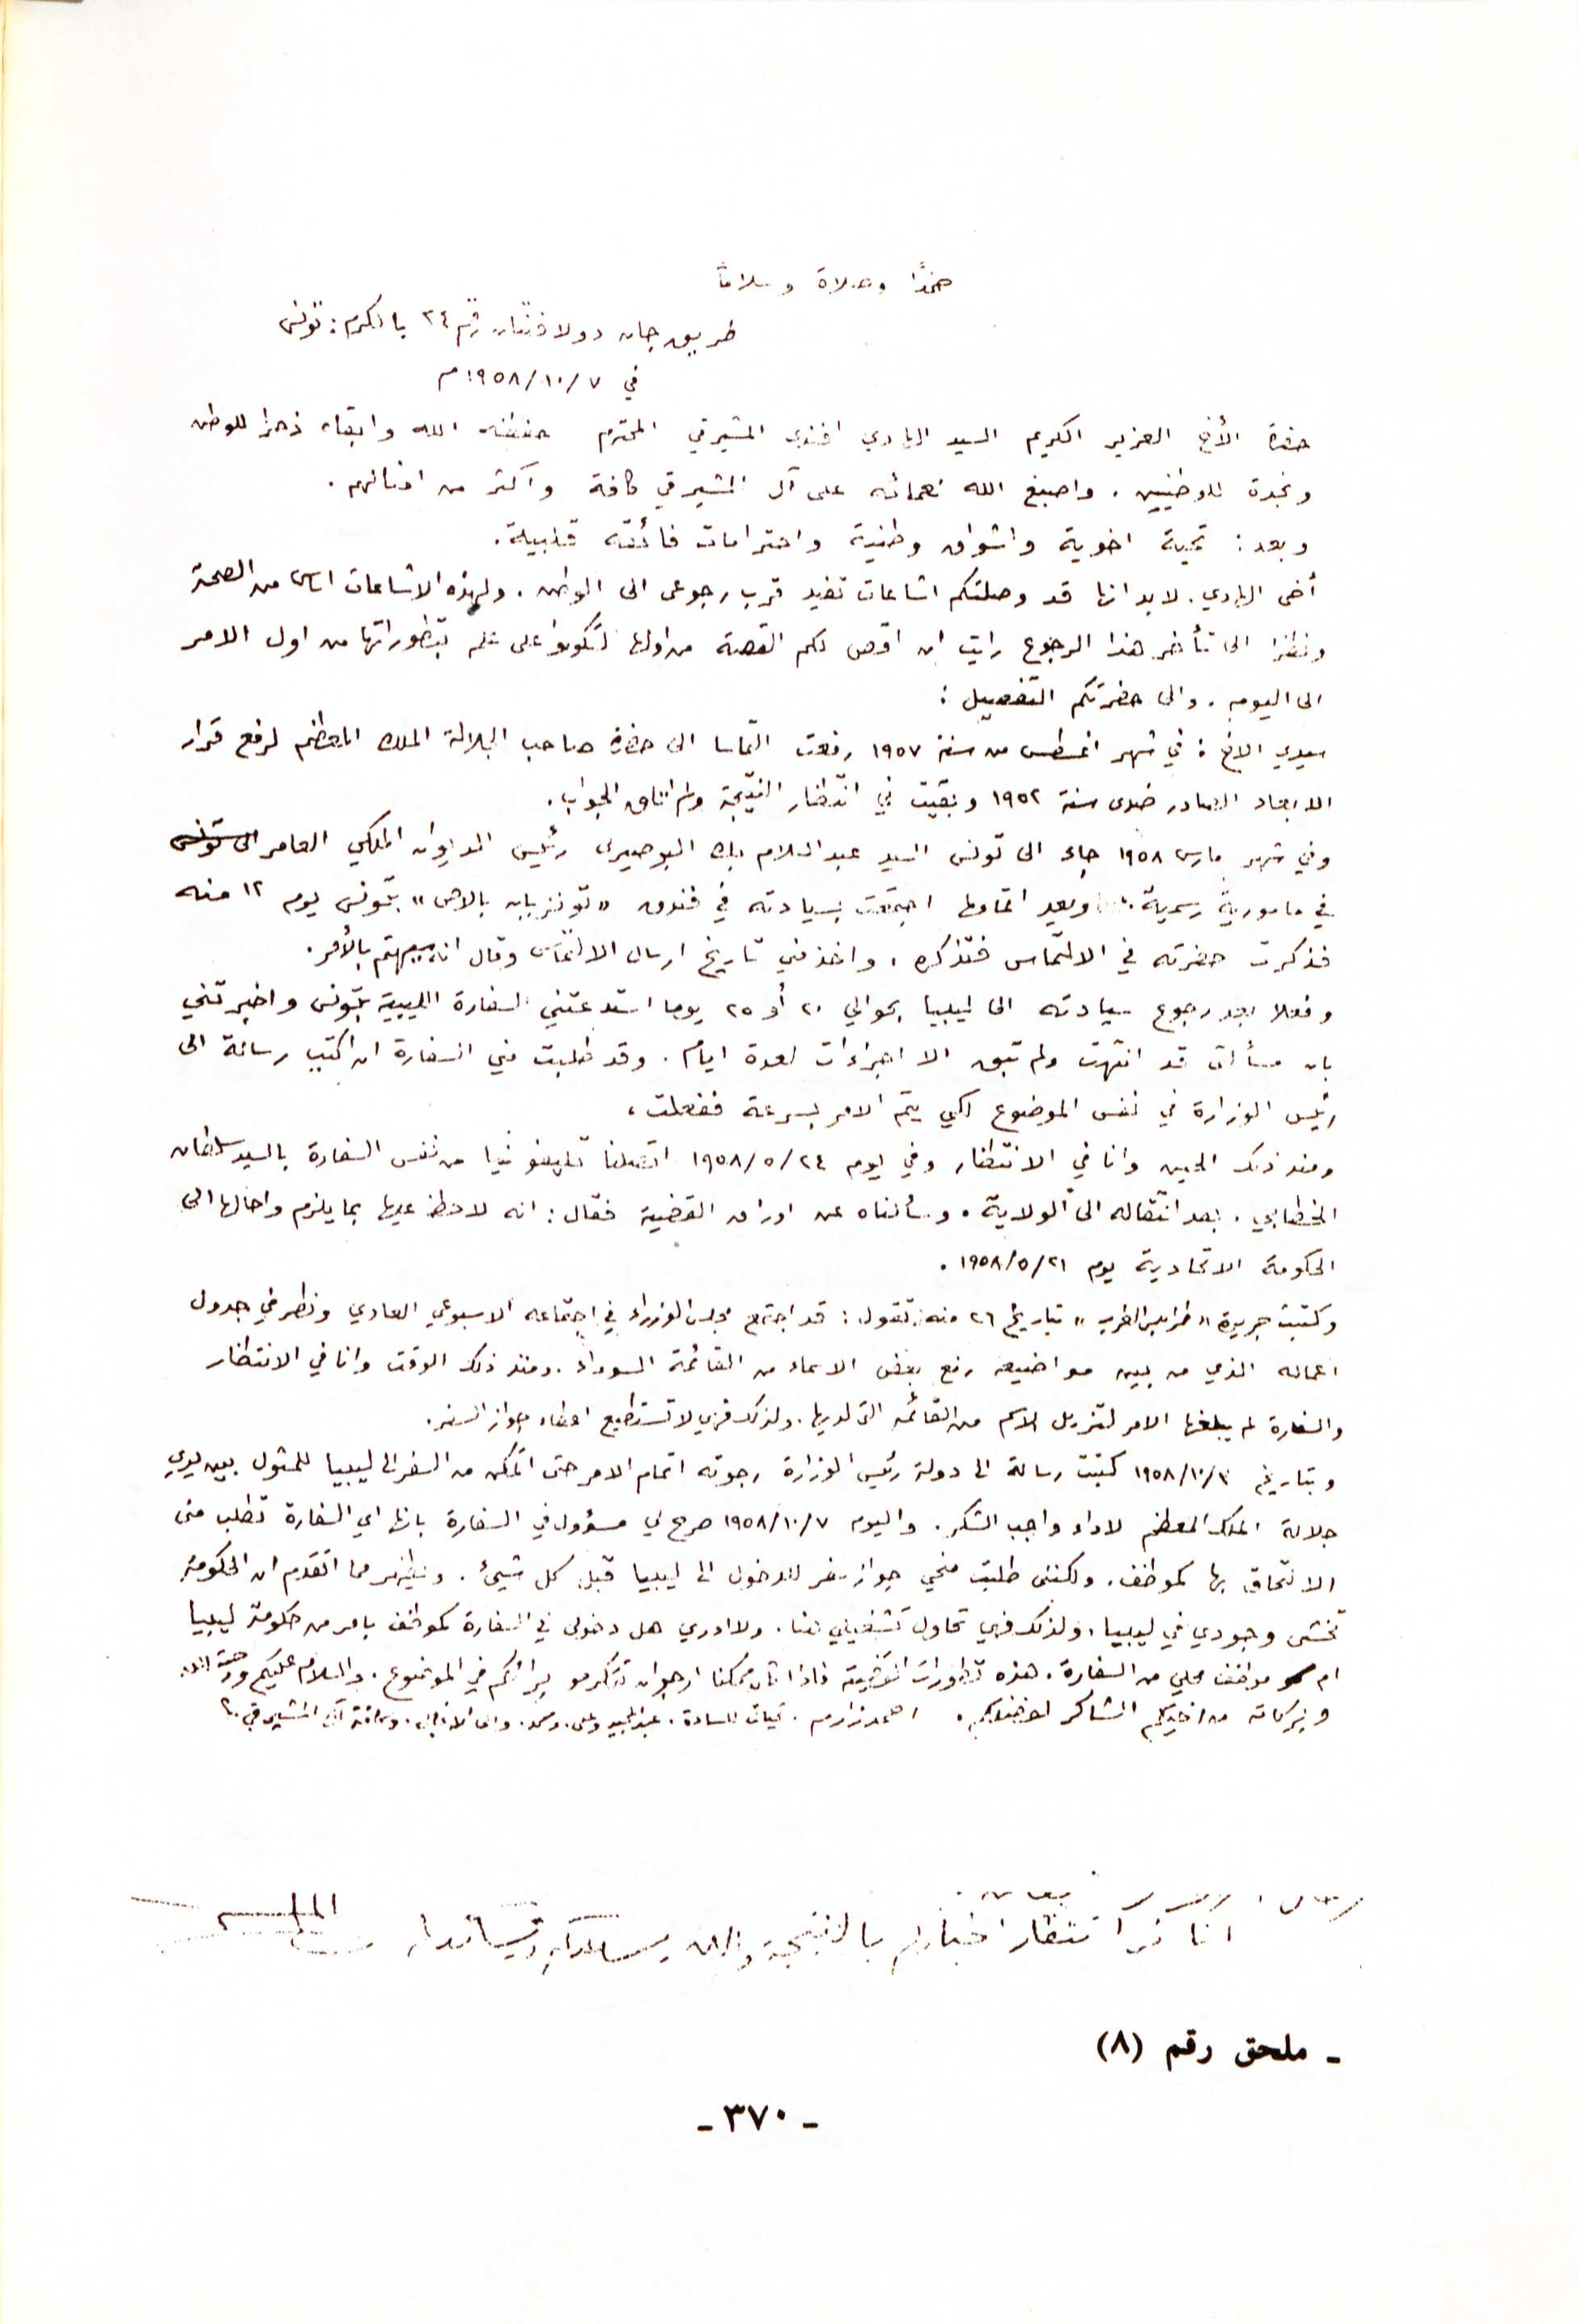 حمدًا وصلاة وسلامًا
طريق جان دولافنتان رقم ٢٤ بالكرم: تونس
في ١٩٥٨/١٠/٧م
حضرة الأخ العزيز الكريم السيد الهادي افندي المشيرقي المحترم حفظه الله وابقاه ذخرا للوطن
ونجدة للوطنيين. واصبغ الله نعمائه على آل المشيرقي كافة واكثر من امثالهم.
وبعد: تحية اخوية واشواق وطنية واحترامات فائقة قلبية.
أخى الهادي. لابد انها قد وصلتكم اشاعات تفيد قرب رجوعى الى الوطن. ولهذه الاشاعات اساس من الصحة
ونظرا الى تأخر هذا الرجوع رايت ان اقص لكم القصة من اولها لتكونوا على علم بتطوراتها من اول الامر
الى اليوم. والى حضرتكم التفصيل:
سيدي الاخ: في شهر اغسطس من سنة ١٩٥٧ رفعت التماسا الى حضرة صاحب الجلالة الملك المعظم لرفع قرار
الابعاد الصادر ضدى سنة ١٩٥٢ وبقيت في انتظار النتيجة ولم اتلق الجواب.
وفي شهر مارس ١٩٥٨ جاء الى تونس السيد عبد السلام بك البوصيرى رئيس الديوان الملكي العامر الى تونس
في مامورية رسمية. وبعد اتمامها اجتمعت بسيادته في فندق «تونزيان بالاص» بتونس يوم ١٢ منه
فذكرت حضرته في الالتماس فتذكره. واخذ مني تاريخ ارسال الالتماس وقال انه سيهتم بالأمر.
وفعلا بعد رجوع سيادته الى ليبيا بحوالي ٢٠ أو ٢٥ يوما استدعتني السفارة الليبية بتونس واخبرتني
بان مسألتى قد انتهت ولم تبق الا اجراءات لعدة ايام. وقد طلبت مني السفارة ان اكتب رسالة الى
رئيس الوزارة في نفس الموضوع لكي يتم الامر بسرعة ففعلت،
ومنذ ذلك الحين وانا في الانتظار وفي يوم ١٩٥٨/٥/٢٤ اتصلنا تليفونيا من نفس السفارة بالسيد سلطان
الخطابي. بعد انتقاله الى الولاية. وسألناه عن اوراق القضية فقال: انه لاحظ عليها بما يلزم واحالها الى
الحكومة الاتحادية يوم ١٩٥٨/٥/٢١.
وكتبت جريدة «طرابلس الغرب» بتاريخ ٢٦ منه تقول: قد اجتمع مجلس الوزراء في اجتماعه الاسبوعي العادي ونظر في جدول
اعماله الذي من بين مواضيعه رفع بعض الاسماء من القائمة السوداء. ومنذ ذلك الوقت وانا في الانتظار
والسفارة لم يبلغها الامر لتنزيل الاسم من القائمة التى لديها. ولذلك فهي لا تستطيع اعطاء جواز السفر.
وبتاريخ ١٩٥٨/١٠/٣ كتبت رسالة الى دولة رئيس الوزارة رجوته اتمام الامر حتى اتمكن من السفر الى ليبيا للمثول بين يدي
جلالة الملك المعظم لاداء واجب الشكر. واليوم ١٩٥٨/١٠/٧ صرح لي مسؤول في السفارة بانها اي السفارة تطلب منى
الالتحاق بها كموظف. ولكننى طلبت منحي جواز سفر للدخول الى ليبيا قبل كل شيئ. ويظهر مما تقدم ان الحكومة
تخشى وجودي في ليبيا، ولذلك فهي تحاول تشغيلي هنا. ولا ادري هل دخولى في السفارة كموظف بامر من حكومة ليبيا
ام موظف محلي من السفارة. هذه تطورات القضية فاذا كان ممكنا ارجو ان تتكرموا برائكم في الموضوع. والسلام عليكم ورحمة الله
وبركاته من اخيكم الشاكر لفضلكم. احمد زارم. تحيات للسادة. عبد المجيد وعلى. ومحمد. والى الانجال. وكافة آل المشيرقي.
انا في انتظار اخباركم بالنتيجة
ـ ملحق رقم (٨)
ـ ٣٧٠ ـ